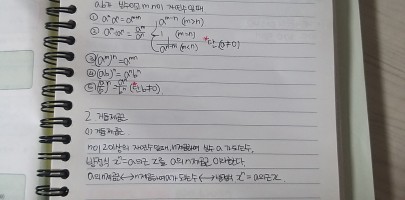 a,b가 실수이고 m, n이 자연수일때
① aᵐaⁿ=aᵐ⁺ⁿ
② aᵐ÷aⁿ= aᵐ/aⁿ { aᵐ⁻ⁿ (m>n)
1 (m=n) *단(a≠0)
(m<n)
③ (aᵐ)ⁿ=aᵐⁿ
④ (ab)ⁿ=aⁿbⁿ
⑤ (a/b)ⁿ=aⁿ/bⁿ (*단 b≠0)
2. 거듭제곱근
(1) 거듭제곱근
n이 2이상의 자연수일때, n제곱하여 실수 a가 되는수,
방정식 xⁿ=a의근 x를 a의 n제곱근 이라한다.
a의 n제곱근 ↔ n제곱하여 a가 되는수 ↔ 방정식 xⁿ=a의근 x.